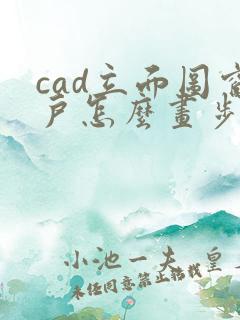 cad立面图窗
户怎麽畫步
小池一夫 皇
未经同意禁止转载